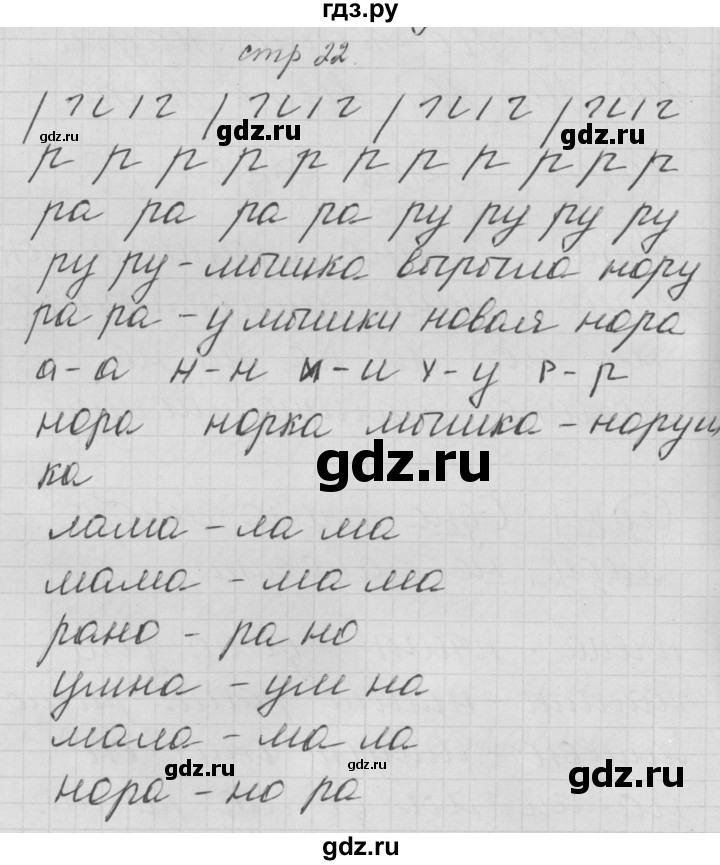 гдз.ру
стр 22.
gdz.ru gdz.ru gdz.ru gdz.ru
р р р р р р р р р р р р
ра ра ра ра ру ру ру ру
ру ру - мышка вырыла нору
ра ра - у мышки новая нора
а - а н - н и - и у - у р - р
нора норка мышка - норуш
gdz.ru
ка
лама - ла ма
мама - ма ма
рано - ра но
умна - ум на
мала - ма ла
gdz.ru gdz.ru gdz.ru
нора - но ра
gdz.ru